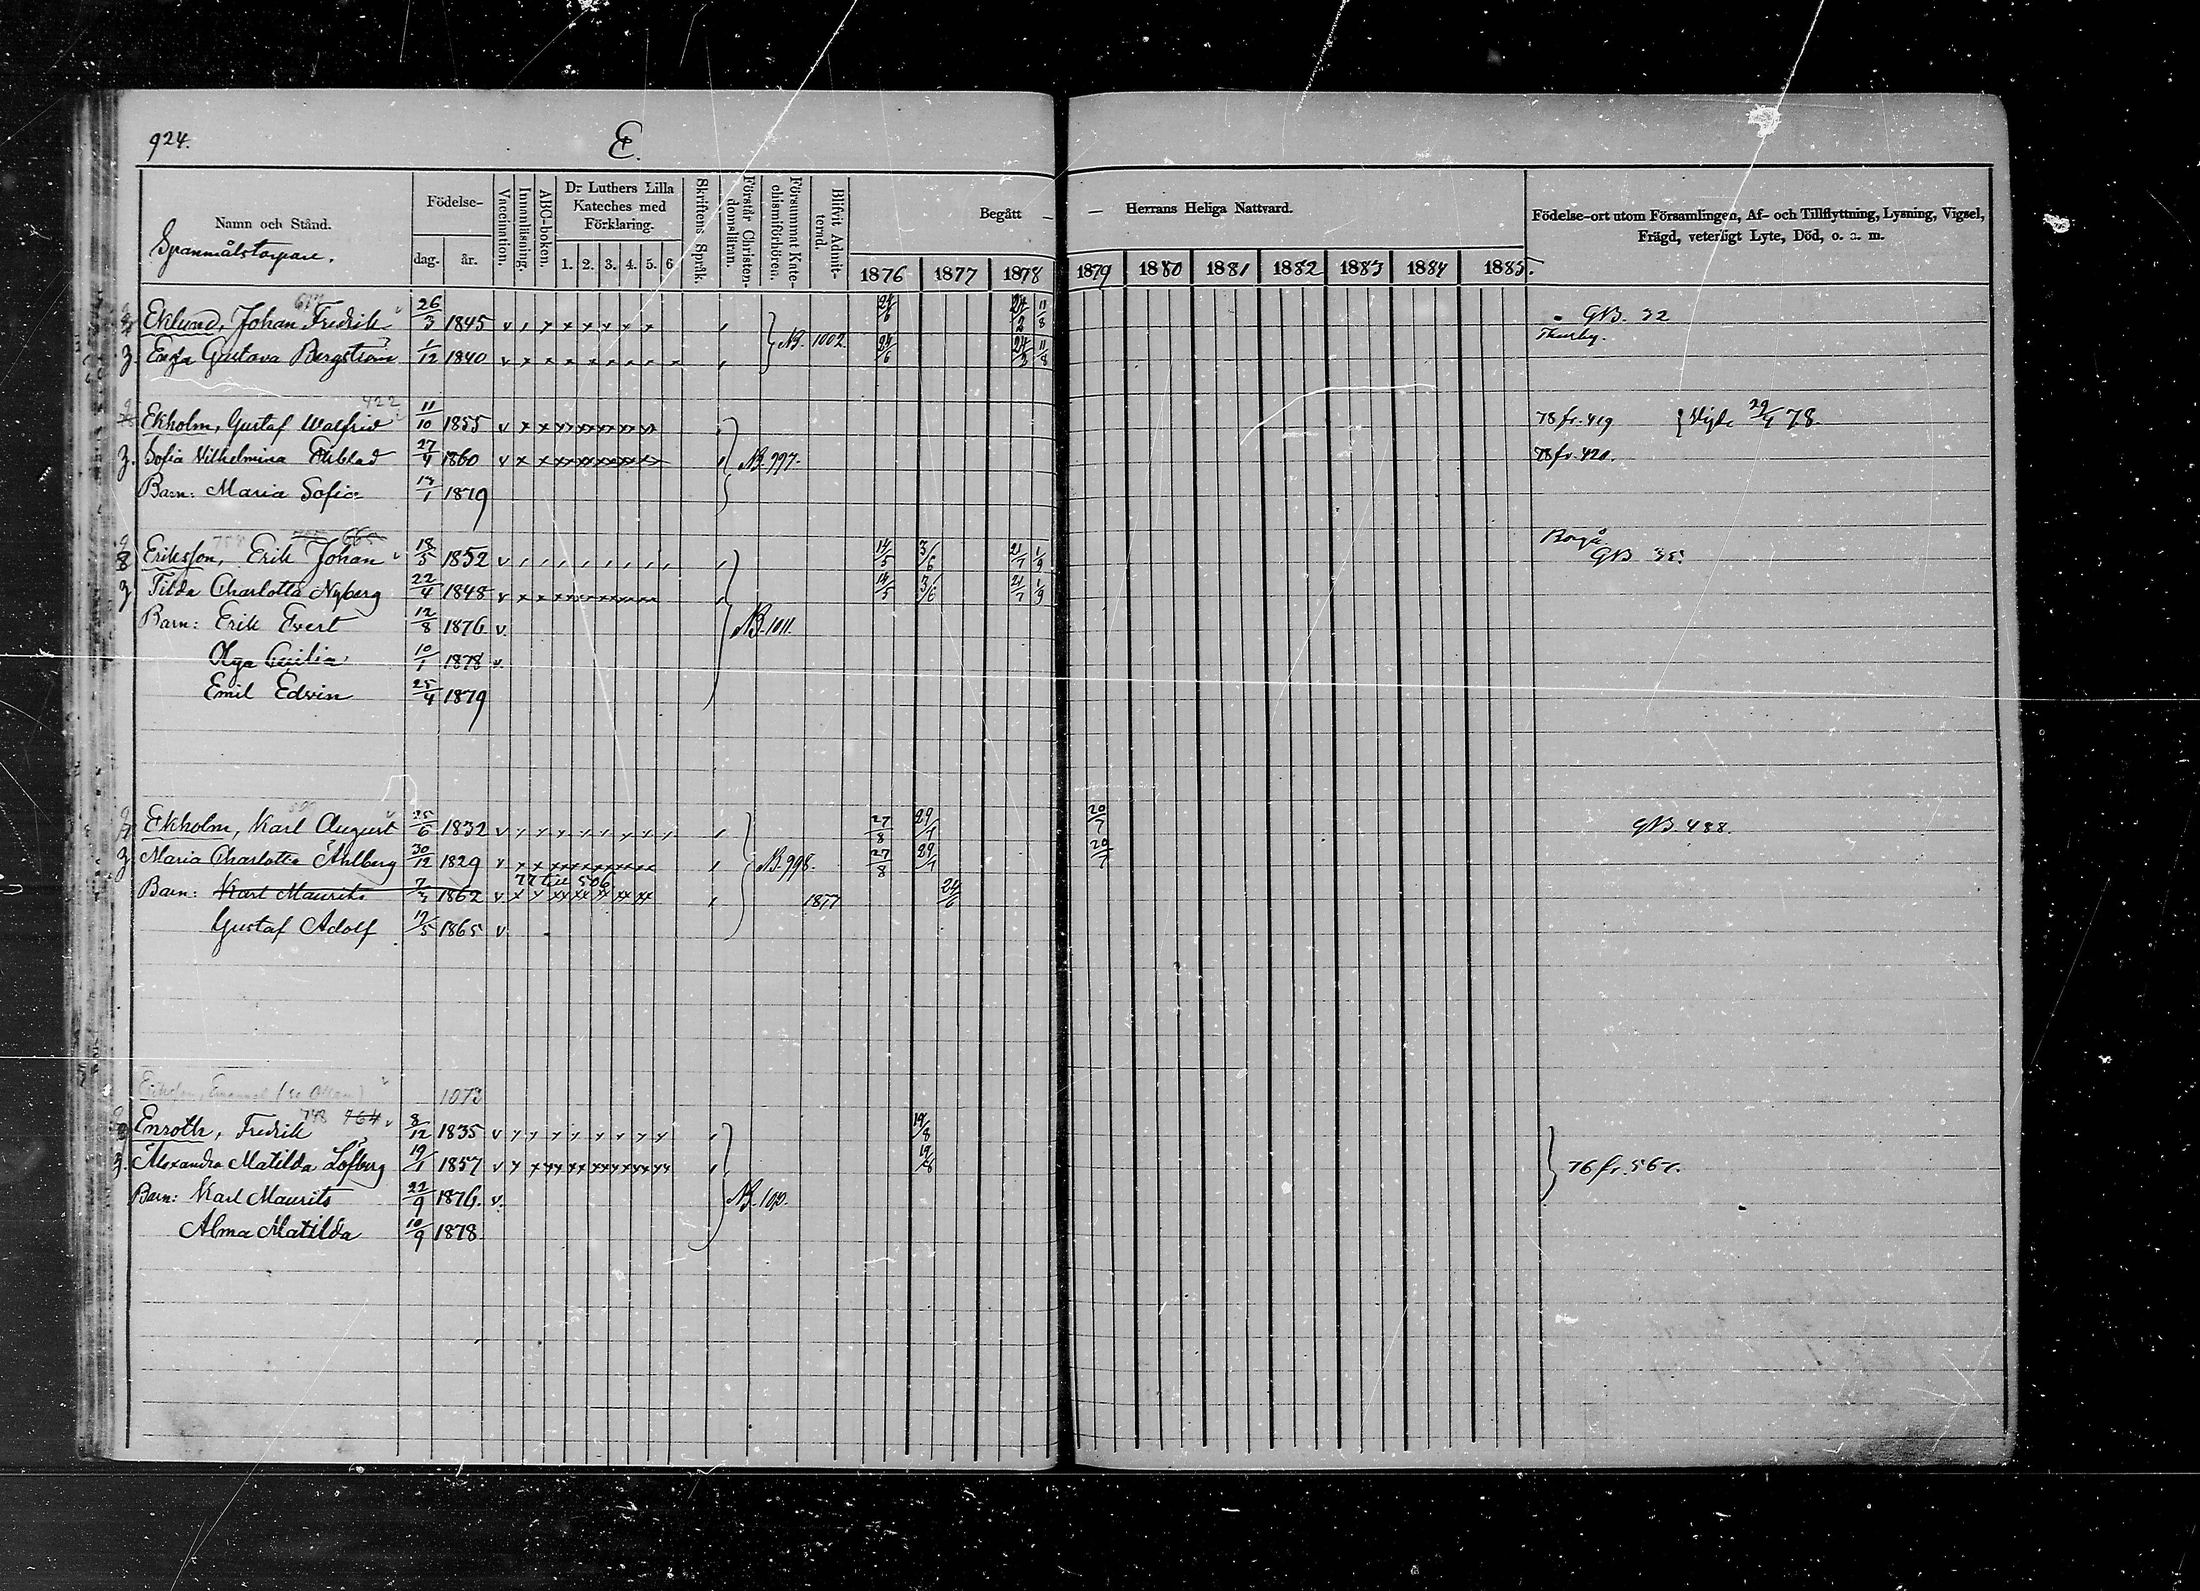 924.
E.
Namn och Stånd.
Spanmålstorpare.
Födelse-
dag.
år.
Vaccination.
Innanläsning.
ABC-boken.
Dr Luthers Lilla
Kateches med
Förklaring.
1. 2. 3. 4. 5. 6
Skriftens Språk.
Förstår Christen-
domsläran.
Försummat Kate-
chismiförhören.
Blifvit Admit-
terad.
Begått — — Herrans Heliga Nattvard.
1876 1877 1878 1879 1880 1881 1882 1883 1884 1885.
Födelse-ort utom Församlingen, Af- och Tillflyttning, Lysning, Vigsel,
Frägd, veterligt Lyte, Död, o. s. m.
Eklund, Johan Fredrik 26/3 1845 v 24/6 11/8 GB. 32
Gustava Bergström 1/12 1840 v NB. 1002. 24/6 11/8
422
Ekholm, Gustaf Walfrid 11/10 1855 v 78 fr. 419 78.
Sofia Vilhelmina 27/4 1860 v NB. 997. 78 fr. 420.
Barn: Maria Sofia 1879
Borgå
Eriksson, Erik Johan 18/5 1852 v 14/5 3/6 21/7 1/9 GB 35.
Tilda Charlotta Nyberg 22/4 1848 v 14/5 3/6 21/7 1/9
Barn: Erik Evert 12/8 1876 v. NB. 1011.
Olga Cecilia 10/1 1878 v.
Emil Edvin 25/4 1879
Ekholm, Karl August 25/6 1832 v 27/8 29/7 20/7 GB. 488.
Maria Charlotta Åhlberg 30/12 1829 v NB. 998. 27/8 29/7 20/7
77 till 506
Barn: Karl Maurits 7/3 1862 v 1877 24/6
Gustaf Adolf 1865 v.
1073
764
Enroth, Fredrik 8/12 1835 v 19/8
Alexandra Matilda Löfberg 19/1 1857 v 19/8 76 fr. 567.
Barn: Karl Maurits 22/9 1876. v.
Alma Matilda 10/9 1878